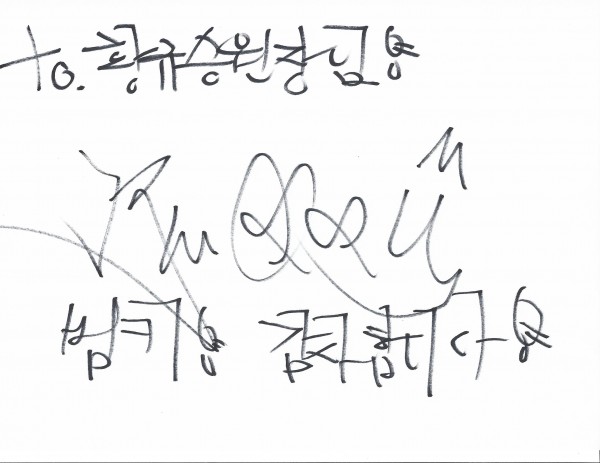 to. 황규승원장님용
범키용 감사합니다용